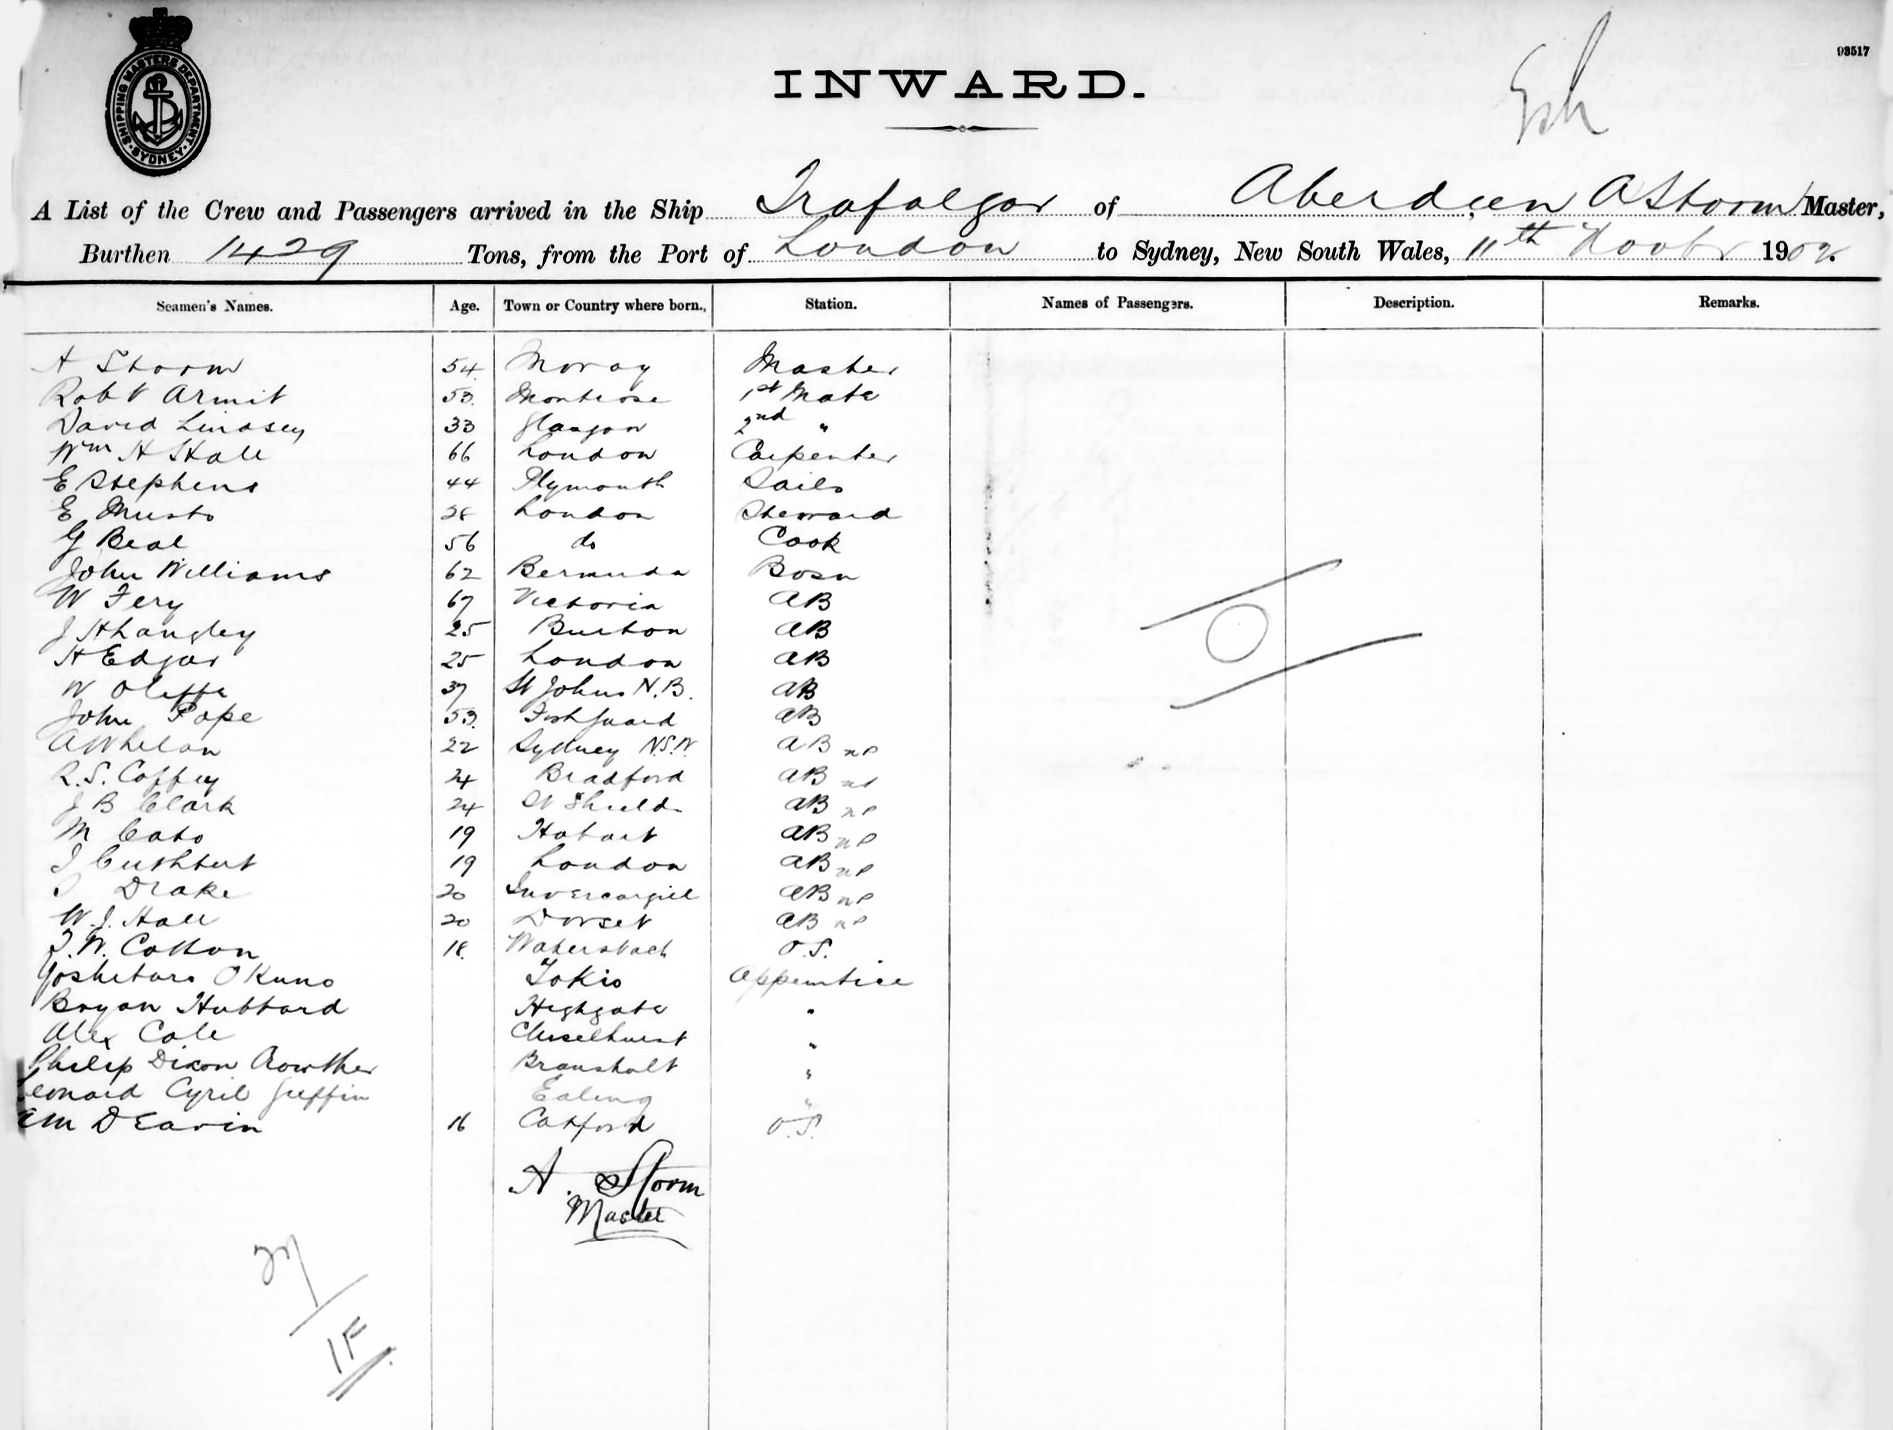 SHIPPING MASTERS DEPARTMENT SYDNEY
93517
INWARD.
A List of the Crew and Passengers arrived in the Ship Trafalgar of Aberdeen A Storm Master,
Burthen 1429 Tons, from the Port of London to Sydney, New South Wales, 11th Novbr 1902
Seamen's Names. Age. Town or Country where born., Station. Names of Passengers. Description. Remarks.
A Storm 54 Moray Master
Robt Armit 53 Montrose 1st Mate
David Lindsey 33 Glasgow 2nd "
Wm H Hall 66 London Carpenter
E Stephens 44 Plymouth Sails
E Musto 28 London Steward
G Beal 56 do Cook
John Williams 62 Bermuda Bosn
W Fery 67 Victoria AB
J H Langley 25 Burton AB
H Edgar 25 London AB
W Oliffe 37 St Johns N.B. AB
John Pope 53 Fishguard AB
A Whelan 22 Sydney N.S.W AB
R.S. Coffey 24 Bradford AB
J B Clark 24 St Shields AB
M Cato 19 Hobart AB
J Cuthbert 19 London AB
Drake 20 Invercargill AB
W.J. Hall 20 Dorset AB
F.W. Cotton 18 Waterbeach O.S.
Yoshitaro Okuno Tokio Apprentice
Bryan Hubbard Highgate "
Alex Cole Chiselhurst "
Philip Dixon Crowther Bramshott "
Leonard Cyril Griffin Ealing "
Wm D Eavin 16 Catford O.S.
A. Storm
Master
27
1F